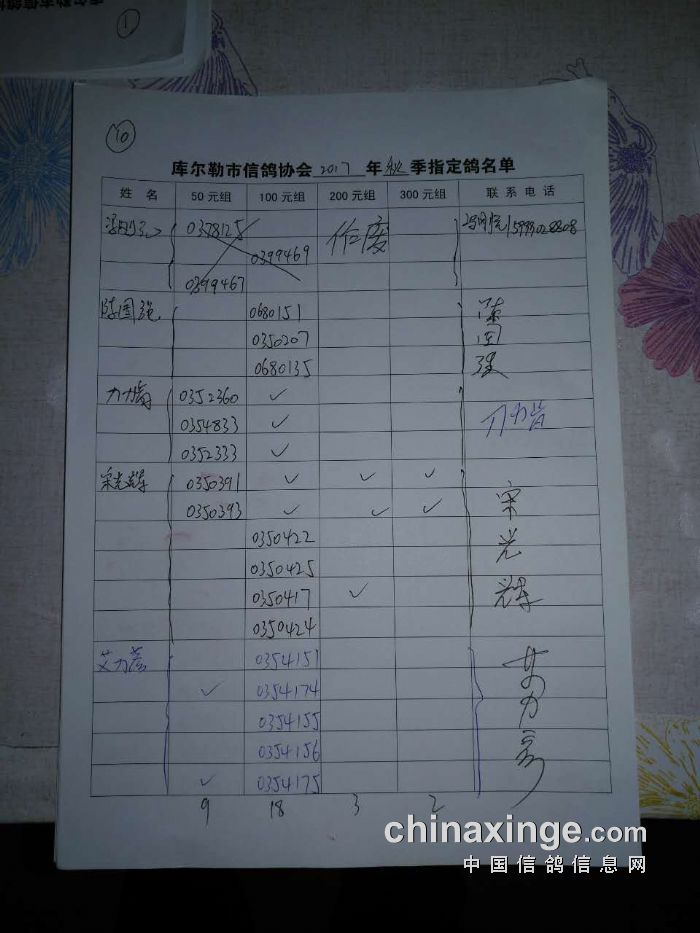 ①
⑩
库尔勒市信鸽协会 2017 年 秋 季指定鸽名单
姓 名 50元组 100元组 200元组 300元组 联系电话
0378125 作废
0399469
0399467
陈国强 0680151 陈
0350207 国
0680135 强
0352360 ✓
0354833 ✓
0352333 ✓
宋光辉 0350391 ✓ ✓ ✓
0350393 ✓ ✓ ✓ 宋
0350422 光
0350425
0350417 ✓ 辉
0350424
艾力 0354151 艾
✓ 0354174 力
0354155
0354156
✓ 0354175
9 18 3 2
chinaxinge.com
中国信鸽信息网